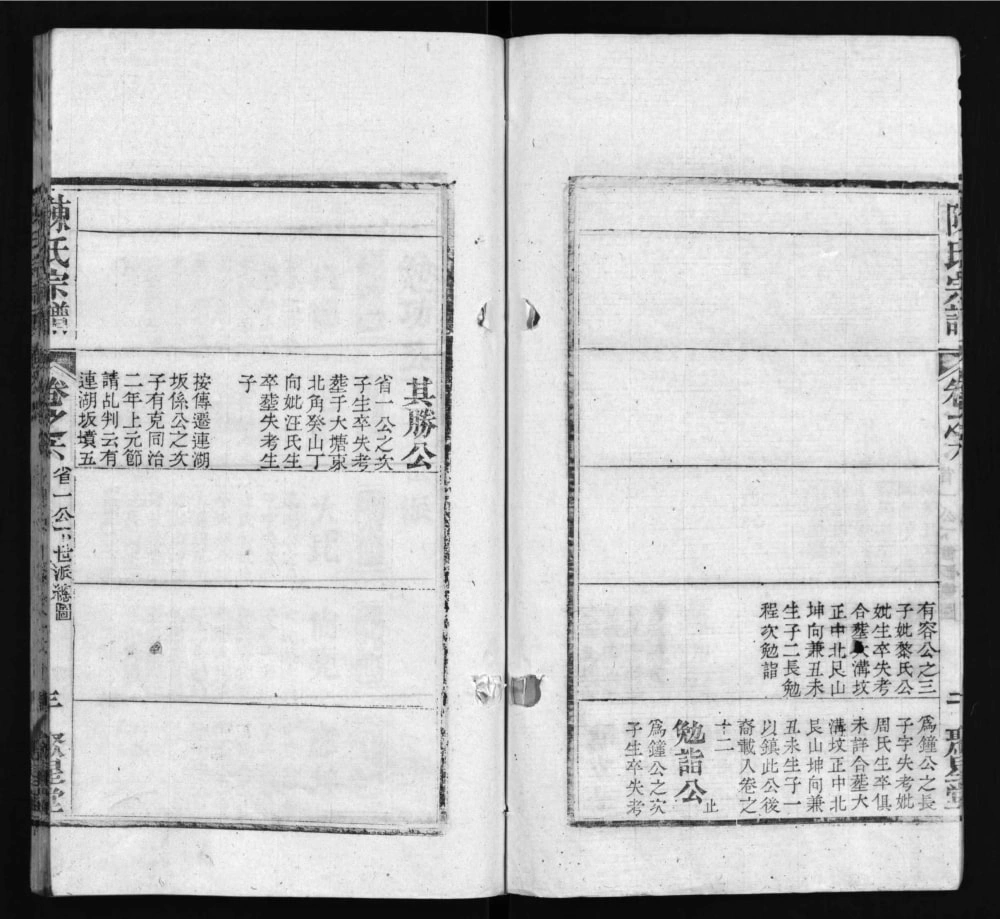 陳氏宗譜
卷之六
二
聚星堂
有容公之三
子妣黎氏公
妣生卒失考
合塟大溝坟
正中北艮山
坤向兼丑未
生子二長勉
程次勉詣
爲鐘公之長
子字失考妣
周氏生卒俱
未詳合塟大
溝坟正中北
艮山坤向兼
丑未生子一
以鎮此公後
裔載入卷之
十二
止
勉詣公
爲鐘公之次
子生卒失考
其勝公
省一公之次
子生卒失考
塟于大塘東
北角癸山丁
向妣汪氏生
卒塟失考生
子
按傳遷連湖
坂係公之次
子有克同治
二年上元節
請乩判云有
連湖坂墳五
陳氏宗譜
卷之六
省一公下世派總圖
三
聚星堂